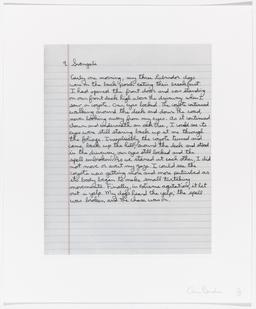 9. Svengali
Early one morning, my three labrador dogs
were on the back porch eating their breakfast.
I had opened the front door and was standing
on our front deck high above the driveway when I
saw a coyote. Our eyes locked. The coyote continued
walking around the deck and down the road,
never looking away from my eyes. As it continued
down and underneath an oak tree, I could see its
eyes were still staring back up at me through
the foliage. Inexplicably, the coyote turned and
came back up the hill, around the deck and stood
in the driveway, our eyes still locked and the
spell unbroken. As we stared at each other, I did
not move or avert my gaze. I could see the
coyote was getting more and more perturbed as
its body began to make small twitching
movements. Finally, in extreme agitation, it let
out a yelp. My dogs heard the yelp, the spell
was broken, and the chase was on.